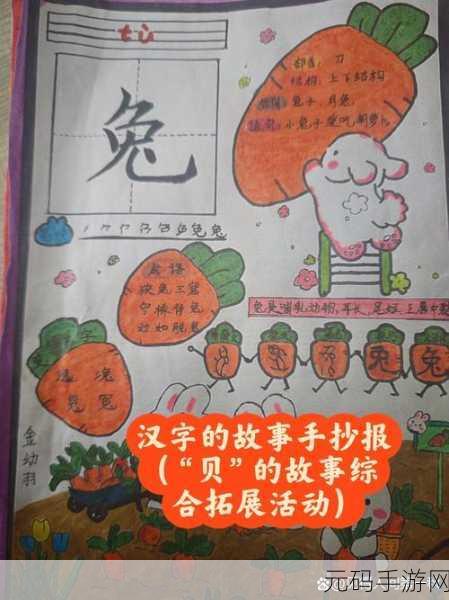 tù
兔
部首：刀
结构：上下结构
组词：兔子、月兔
造句：小兔子爱吃胡萝卜
成语
狡兔三窟
守株待兔
动如脱兔
兔是哺乳动物,耳长,尾短,上唇中裂
兔 兔
逸 冤
金幼羽
汉字的故事手抄报
(“贝”的故事综
合拓展活动)
元码手游网